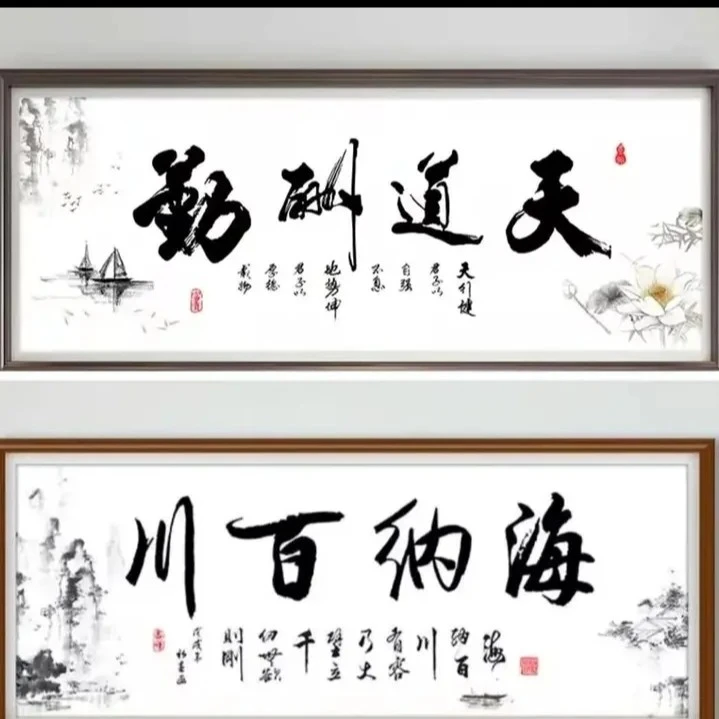 天道酬勤
天行健
君子以
自强
不息
地势坤
君子以
厚德
载物
海纳百川
海
纳百
川
有容
乃大
壁立
千
仞無欲
则刚
戊戌年